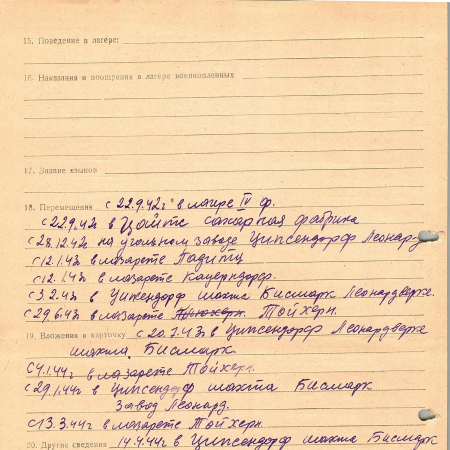 15. Поведение в лагере:
16. Наказания и поощрения в лагере военнопленных
17. Знание языков
18. Перемещения с 22.9.42г в лагре IV ф.
с 22.9.42г в Цойтс сахарная фабрика
с 28.12.42г на угольном заводе Ципсендорф Леонард
с 12.1.43г в лазарете Падитц
с 12.1.43г в лазарете Кауерндорф.
с 3.2.43г в Ципсендорф шахта Бисмарк Леонардверке.
с 29.6.43г в лазарете Тойхерн.
19. Вложения в карточку с 20.7.43г в Ципсендорф Леонардверке
шахта Бисмарк.
с 4.1.44г в лазарете Тойхерн.
с 29.1.44г в Ципсендорф шахта Бисмарк
завод Леонард.
с 13.3.44г в лазарете Тойхерн.
20. Другие сведения 14.4.44г в Ципсендорф шахта Бисмарк